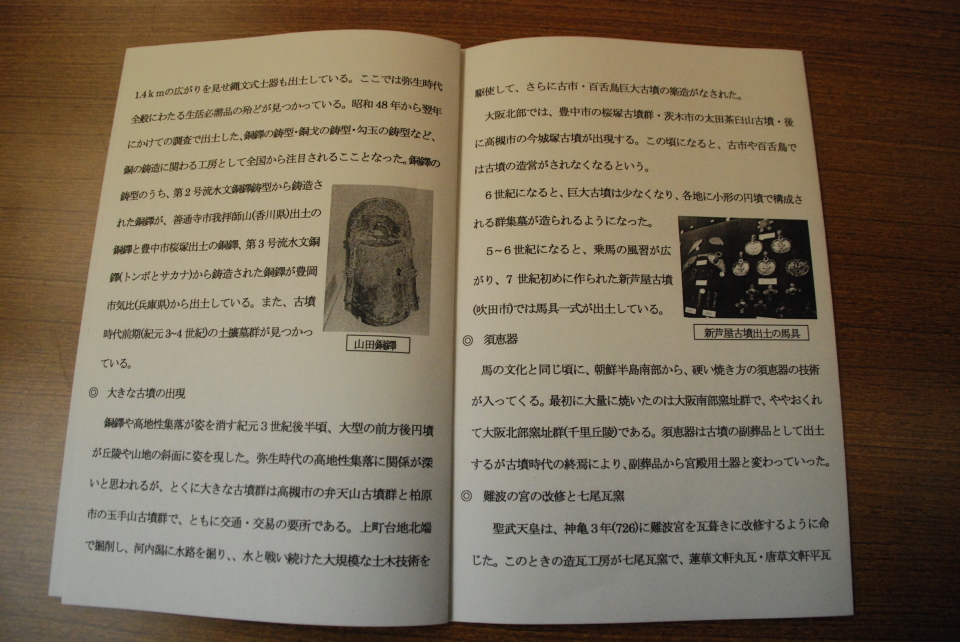 1.4ｋｍの広がりを見せ縄文式土器も出土している。ここでは弥生時代
全般にわたる生活必需品の殆どが見つかっている。昭和48年から翌年
にかけての調査で出土した、銅鐸の鋳型・銅戈の鋳型・勾玉の鋳型など、
銅の鋳造に関わる工房として全国から注目されるこことなった。銅鐸の
鋳型のうち、第２号流水文銅鐸鋳型から鋳造さ
れた銅鐸が、善通寺市我拝師山(香川県)出土の
銅鐸と豊中市桜塚出土の銅鐸、第３号流水文銅
鐸(トンボとサカナ)から鋳造された銅鐸が豊岡
市気比(兵庫県)から出土している。また、古墳
時代前期(紀元3~4世紀)の土擴墓群が見つかっ
ている。
山田銅鐸
◎　大きな古墳の出現
銅鐸や高地性集落が姿を消す紀元３世紀後半頃、大型の前方後円墳
が丘陵や山地の斜面に姿を現した。弥生時代の高地性集落に関係が深
いと思われるが、とくに大きな古墳群は高槻市の弁天山古墳群と柏原
市の玉手山古墳群で、ともに交通・交易の要所である。上町台地北端
で掘削し、河内潟に水路を掘り、、水と戦い続けた大規模な土木技術を
駆使して、さらに古市・百舌鳥巨大古墳の築造がなされた。
大阪北部では、豊中市の桜塚古墳群・茨木市の太田茶臼山古墳・後
に高槻市の今城塚古墳が出現する。この頃になると、古市や百舌鳥で
は古墳の造営がされなくなるという。
６世紀になると、巨大古墳は少なくなり、各地に小形の円墳で構成さ
れる群集墓が造られるようになった。
５~６世紀になると、乗馬の風習が広
がり、７世紀初めに作られた新芦屋古墳
(吹田市)では馬具一式が出土している。
新芦屋古墳出土の馬具
◎　須恵器
馬の文化と同じ頃に、朝鮮半島南部から、硬い焼き方の須恵器の技術
が入ってくる。最初に大量に焼いたのは大阪南部窯址群で、ややおくれ
て大阪北部窯址群(千里丘陵)である。須恵器は古墳の副葬品として出土
するが古墳時代の終焉により、副葬品から宮殿用土器と変わっていった。
◎　難波の宮の改修と七尾瓦窯
聖武天皇は、神亀３年(726)に難波宮を瓦葺きに改修するように命
じた。このときの造瓦工房が七尾瓦窯で、蓮華文軒丸瓦・唐草文軒平瓦